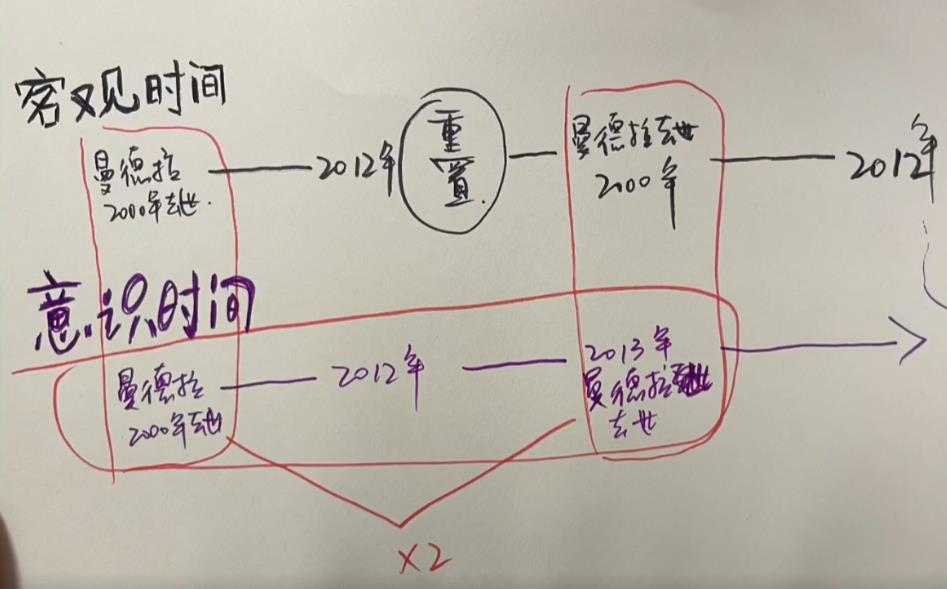 客观时间
曼德拉
2000年去世.
2012年
重
置
曼德拉去世
2000年
2012年
意识时间
曼德拉
2000年去世
2012年
2013年
曼德拉
去世
×2